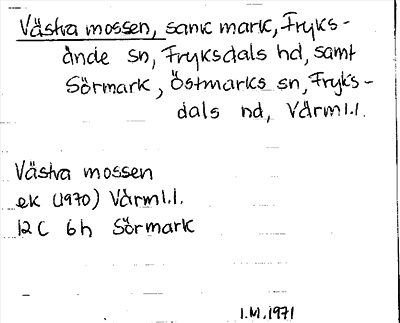 Västra mossen, sank mark, Fryks-
ände sn, Fryksdals hd, samt
Sörmark, Östmarks sn, Fryks-
dals hd, Värml.l.
Västra mossen
ek (1970) Värml.l.
12C 6h Sörmark
1.M.1971